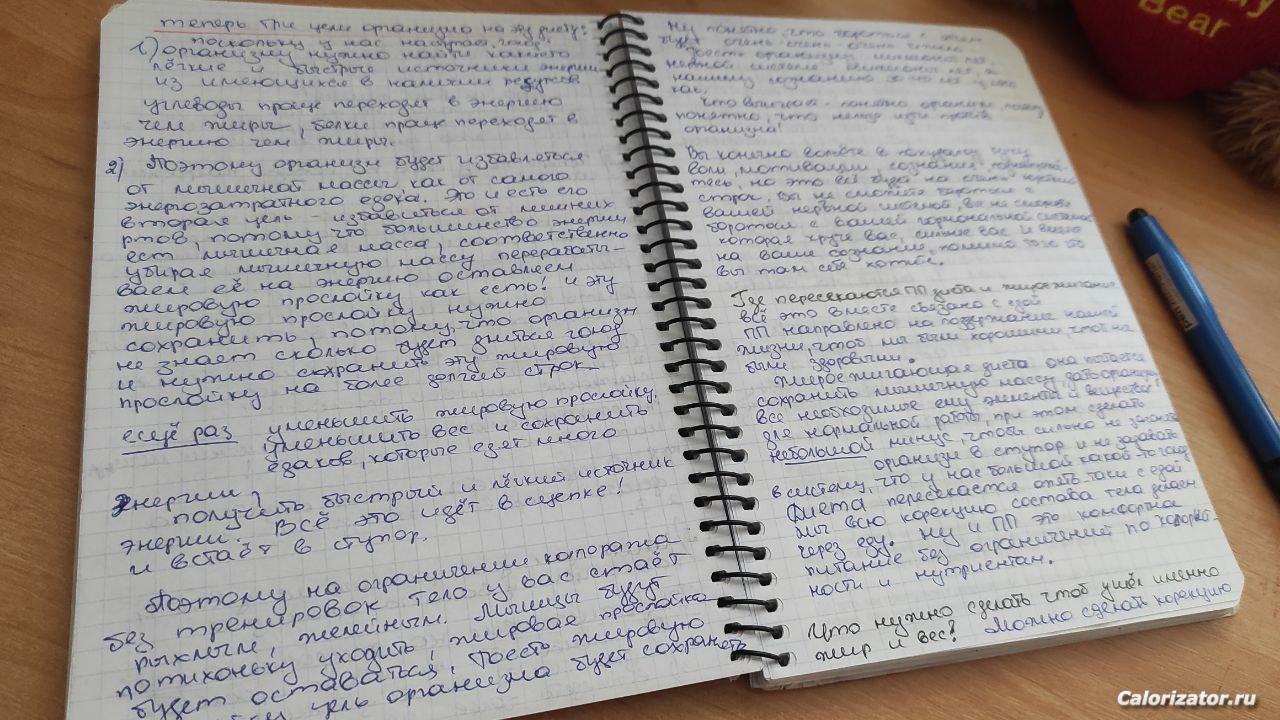 теперь три цели организма на эту диету:
поскольку у нас наступает голод
1.) организму нужно найти
лёгкие и быстрые источники энергии
из имеющихся в наличии ресурсов
углеводы проще переходят в энергию
чем жиры, белки проще переходят в
энергию чем жиры.
2) Поэтому организм будет избавляться
от мышечной массы, как от самого
энергозатратного едока. Это и есть его
вторая цель – избавиться от лишних
ртов, потому что большинство энергии
ест мышечная масса, соответственно
убирая мышечную массу перерабаты–
ваем её на энергию оставляем
жировую прослойку как есть! и эту
жировую прослойку нужно
сохранить, потому, что организм
не знает сколько будет длиться голод
и нужно сохранить эту жировую
прослойку на более долгий строк.
ещё раз уменьшить жировую прослойку,
уменьшить вес и сохранить
едаков, которые едят много
энергии?
получить быстрый и лёгкий источник
энергии. Всё это идёт в сцепке!
и встаёт в ступор.
Поэтому на ограничение калоража
без тренировок тело у вас стаёт
рыхлым, желейным. Мышцы будут
потихоньку уходить, жировая прослойка
будет оставаться, тоесть жировую
цель организма будет сохранять
Ну понятно, что бороться с этим
будет очень-очень-очень сложно
тоесть организму
нервной системе
нашему сознанию
как.
Что выиграет - понятно организм, поэтому
понятно, что нельзя идти против
организма!
Вы конечно вольны в
воли, мотивации, сознания
тесь, но это всё будет на очень короткий
строк, вы не сможете бороться с
вашей нервной системой, вы не сможете
бороться с вашей гормональной системой
которая круче вас, сильнее вас и влияет
на ваше сознание, помимо того что
вы там себе хотите.
Где пересекаются ПП диета и жиросжигание
всё это вместе связано с едой
ПП направлено на поддержание нашей
жизни, чтоб мы были хорошими, чтоб мы
были здоровыми.
Жиросжигающая диета она пытается
сохранить мышечную массу, дать организму
все необходимые ему элементы и вещества!
для нормальной работы, при этом сделать
небольшой минус, чтобы сильно не загонять
организм в ступор и не загонять
в систему, что у нас большой какой то голод
Диета пересекается опять таки с едой
мы всю корекцию состава тела делаем
через еду. Ну и ПП это комфортное
питание без ограничений по калорий–
ности и нутриентам.
Что нужно сделать чтоб ушёл именно
жир и вес? Можно сделать корекцию
Bear
Calorizator.ru